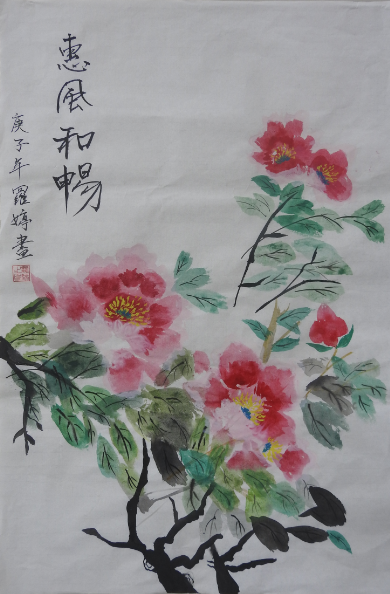 惠风和畅
庚子年羅婷畫